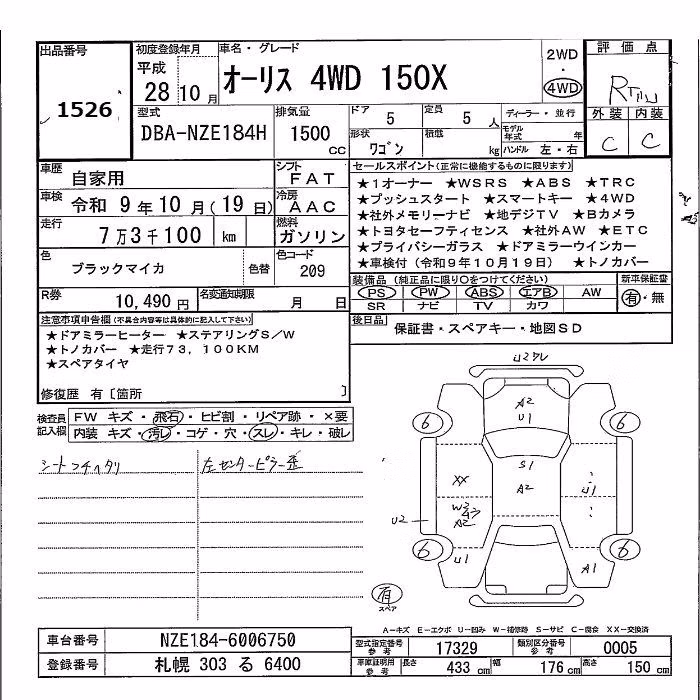 出品番号
1526
初度登録年月
平成
28 10月
車名・グレード
オーリス 4WD 150X
2WD
・
4WD
評価点
外装 内装
C C
型式
DBA-NZE184H
排気量
1500 CC
ドア
5
定員
5人
ディーラー・並行
形状
ワゴン
積載
kg
モデル年式
年
ハンドル 左・右
車歴
自家用
シフト
FAT
車検
令和 9年10月(19日)
冷房
AAC
走行
7万3千100 km
燃料
ガソリン
色
ブラックマイカ
色替
色コード
209
R券
10,490円
名変通知期限
月 日
セールスポイント(正常に機能するものに限ります)
★1オーナー ★WSRS ★ABS ★TRC
★プッシュスタート ★スマートキー ★4WD
★社外メモリーナビ ★地デジTV ★Bカメラ
★トヨタセーフティセンス ★社外AW ★ETC
★プライバシーガラス ★ドアミラーウインカー
★車検付(令和9年10月19日) ★トノカバー
装備品(純正品に限り○をつけてください)
PS PW ABS エアB AW
SR ナビ TV カワ
新車保証書
有・無
後日品
保証書・スペアキー・地図SD
注意事項申告欄(不具合内容等は具体的に記入して下さい)
★ドアミラーヒーター ★ステアリングS/W
★トノカバー ★走行73,100KM
★スペアタイヤ
修復歴 有[箇所 ]
検査員記入欄
FW キズ・飛石・ヒビ割・リペア跡・×要
内装 キズ・汚レ・コゲ・穴・スレ・キレ・破レ
シートフチヘタリ
左センターピラー歪
A2
U1
6 6
S1
A2
XX
U1
A2
U2
6 6
U1
A1
有
スペア
A―キズ E―エクボ U―凹み W―補修跡 S―サビ C―腐食 XX―交換済
車台番号
NZE184-6006750
登録番号
札幌 303 る 6400
型式指定番号 参考
17329
類別区分番号 参考
0005
車庫証明用 参考
長さ 433 cm 幅 176 cm 高さ 150 cm